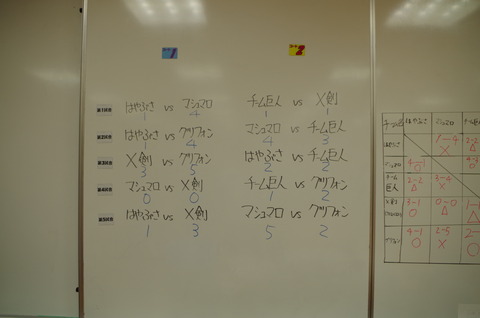 1 2
第1試合 はやぶさ vs マシュマロ チーム巨人 vs X剣
1 4 1 1
第2試合 はやぶさ vs グリフォン マシュマロ vs チーム巨人
1 4 4 3
第3試合 X剣 vs グリフォン はやぶさ vs チーム巨人
3 5 2 2
第4試合 マシュマロ vs X剣 チーム巨人 vs グリフォン
0 0 1 2
第5試合 はやぶさ vs X剣 マシュマロ vs グリフォン
1 3 5 2
チーム名 はやぶさ マシュマロ
はやぶさ 1-4 2-2
× △
マシュマロ 4-1 4-3
○ ○
チーム巨人 2-2 3-4
△ ×
3-1 0-0 1-1
○ △ △
グリフォン 4-1 2-5 2-1
○ × ○